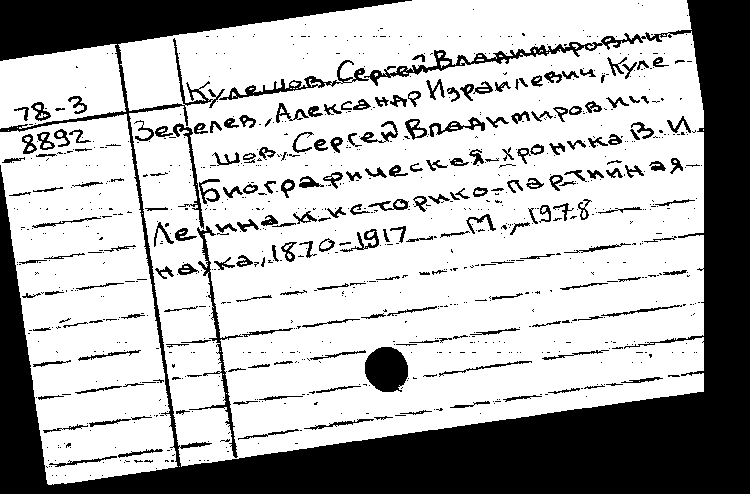 Кулешов, Сергей Владимирович
78-3
8892
Зевелев, Александр Израилевич, Куле-
шов, Сергей Владимирович
Биографическая хроника В. И.
Ленина и историко-партийная
наука, 1870-1917 М., 1978